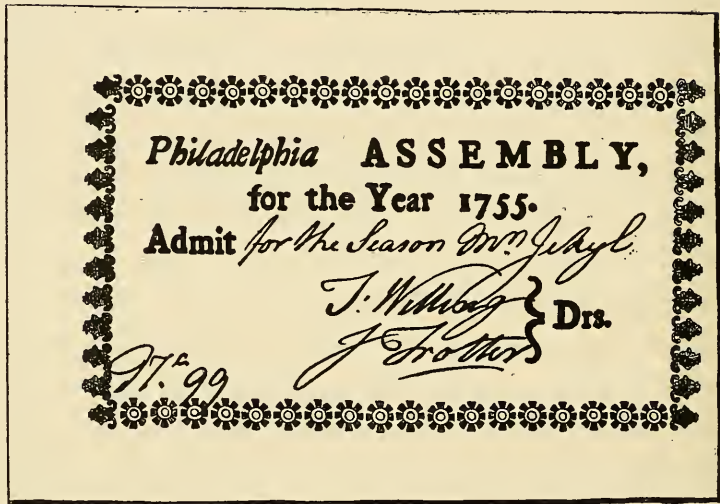 Philadelphia ASSEMBLY,
for the Year 1755.
Admit for the Season Mrs Jekyl
T: Willing
J Trotter } Drs.
No. 99